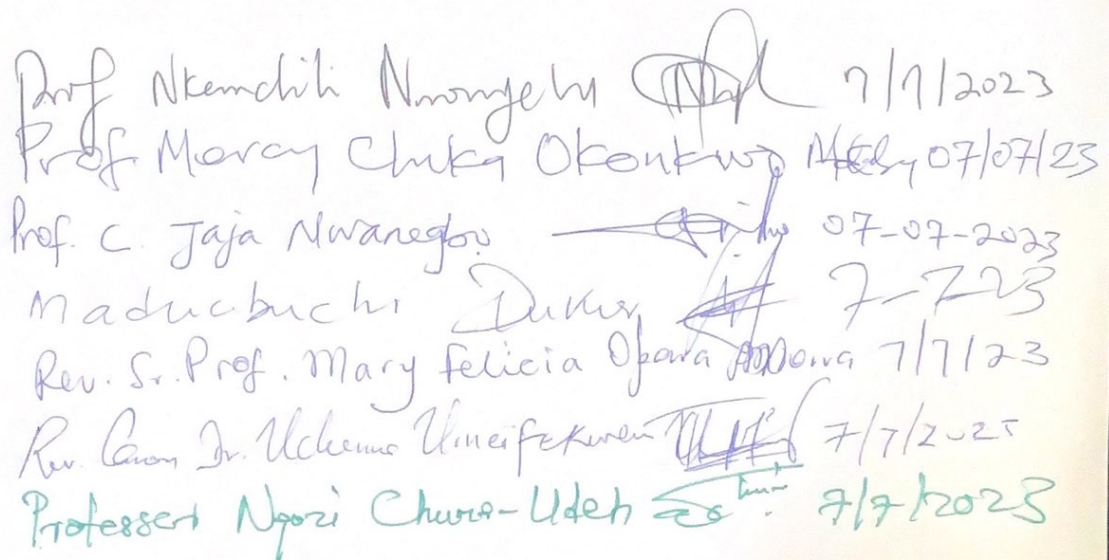 Prof Nkemdili Nnonyelu 7/7/2023
Prof. Mercy Chuka Okonkwo 07/07/23
Prof. C. Jaja Nwanegbo 07-07-2023
Maduabuchi Dukor 7-7-23
Rev. Sr. Prof. Mary Felicia Opara 7/7/23
Rev. Canon Dr. Uchenna 7/7/2023
Professor Ngozi Chuma-Udeh 7/7/2023